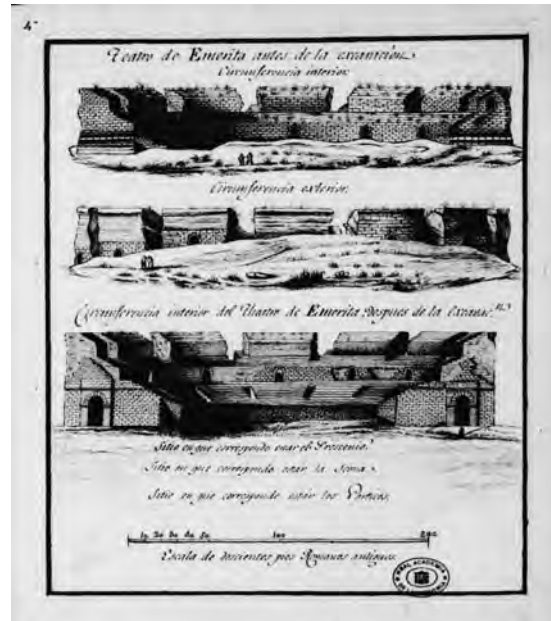 4ª
Teatro de Emerita antes de la excavacion.
Circunferencia interior.
Circunferencia exterior.
Circunferencia interior del Theatro de Emerita despues de la Excavac.n
Sitio en que corresponde estar el Proscenio.
Sitio en que corresponde estar la Scena.
Sitio en que corresponde estar los Porticos.
10 20 30 40 50 100 200
Escala de doscientos pies Romanos antiguos
REAL ACADEMIA